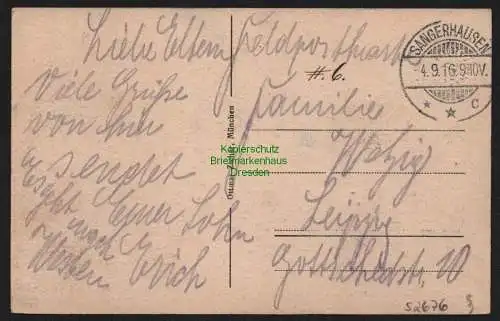 Liebe Eltern
Viele Grüße
von hier
sendet
Euer Sohn
Erich
Es geht
nach
Westen
Feldpostkarte
#.6.
Familie
Leipzig
Gottschedstr. 10
SANGERHAUSEN
4.9.16.9-10V.
* * c
Ottmar Zieher, München
Kopierschutz
Briefmarkenhaus
Dresden
52676